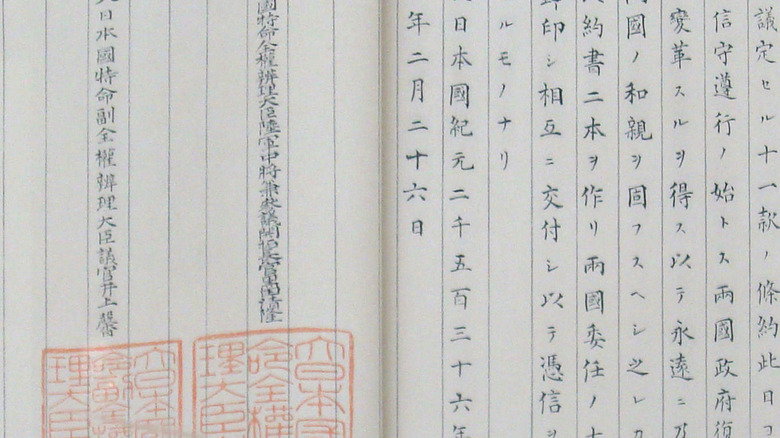 議定セル十一款ノ條約此日ヨ
信守遵行ノ始トス兩國政府復
變革スルヲ得ス以テ永遠ニ及
國ノ和親ヲ固フスヘシ之レカ
約書二本ヲ作リ兩國委任ノ大
印シ相互ニ交付シ以テ憑信ヲ
ルモノナリ
日本國紀元二千五百三十六年
年二月二十六日
國特命全權辨理大臣陸軍中將兼參議開拓長官黒田清隆
大日本國特命副全權辨理大臣議官井上馨
大日本國
命全權
理大臣
大日本國
命副全權
理大臣